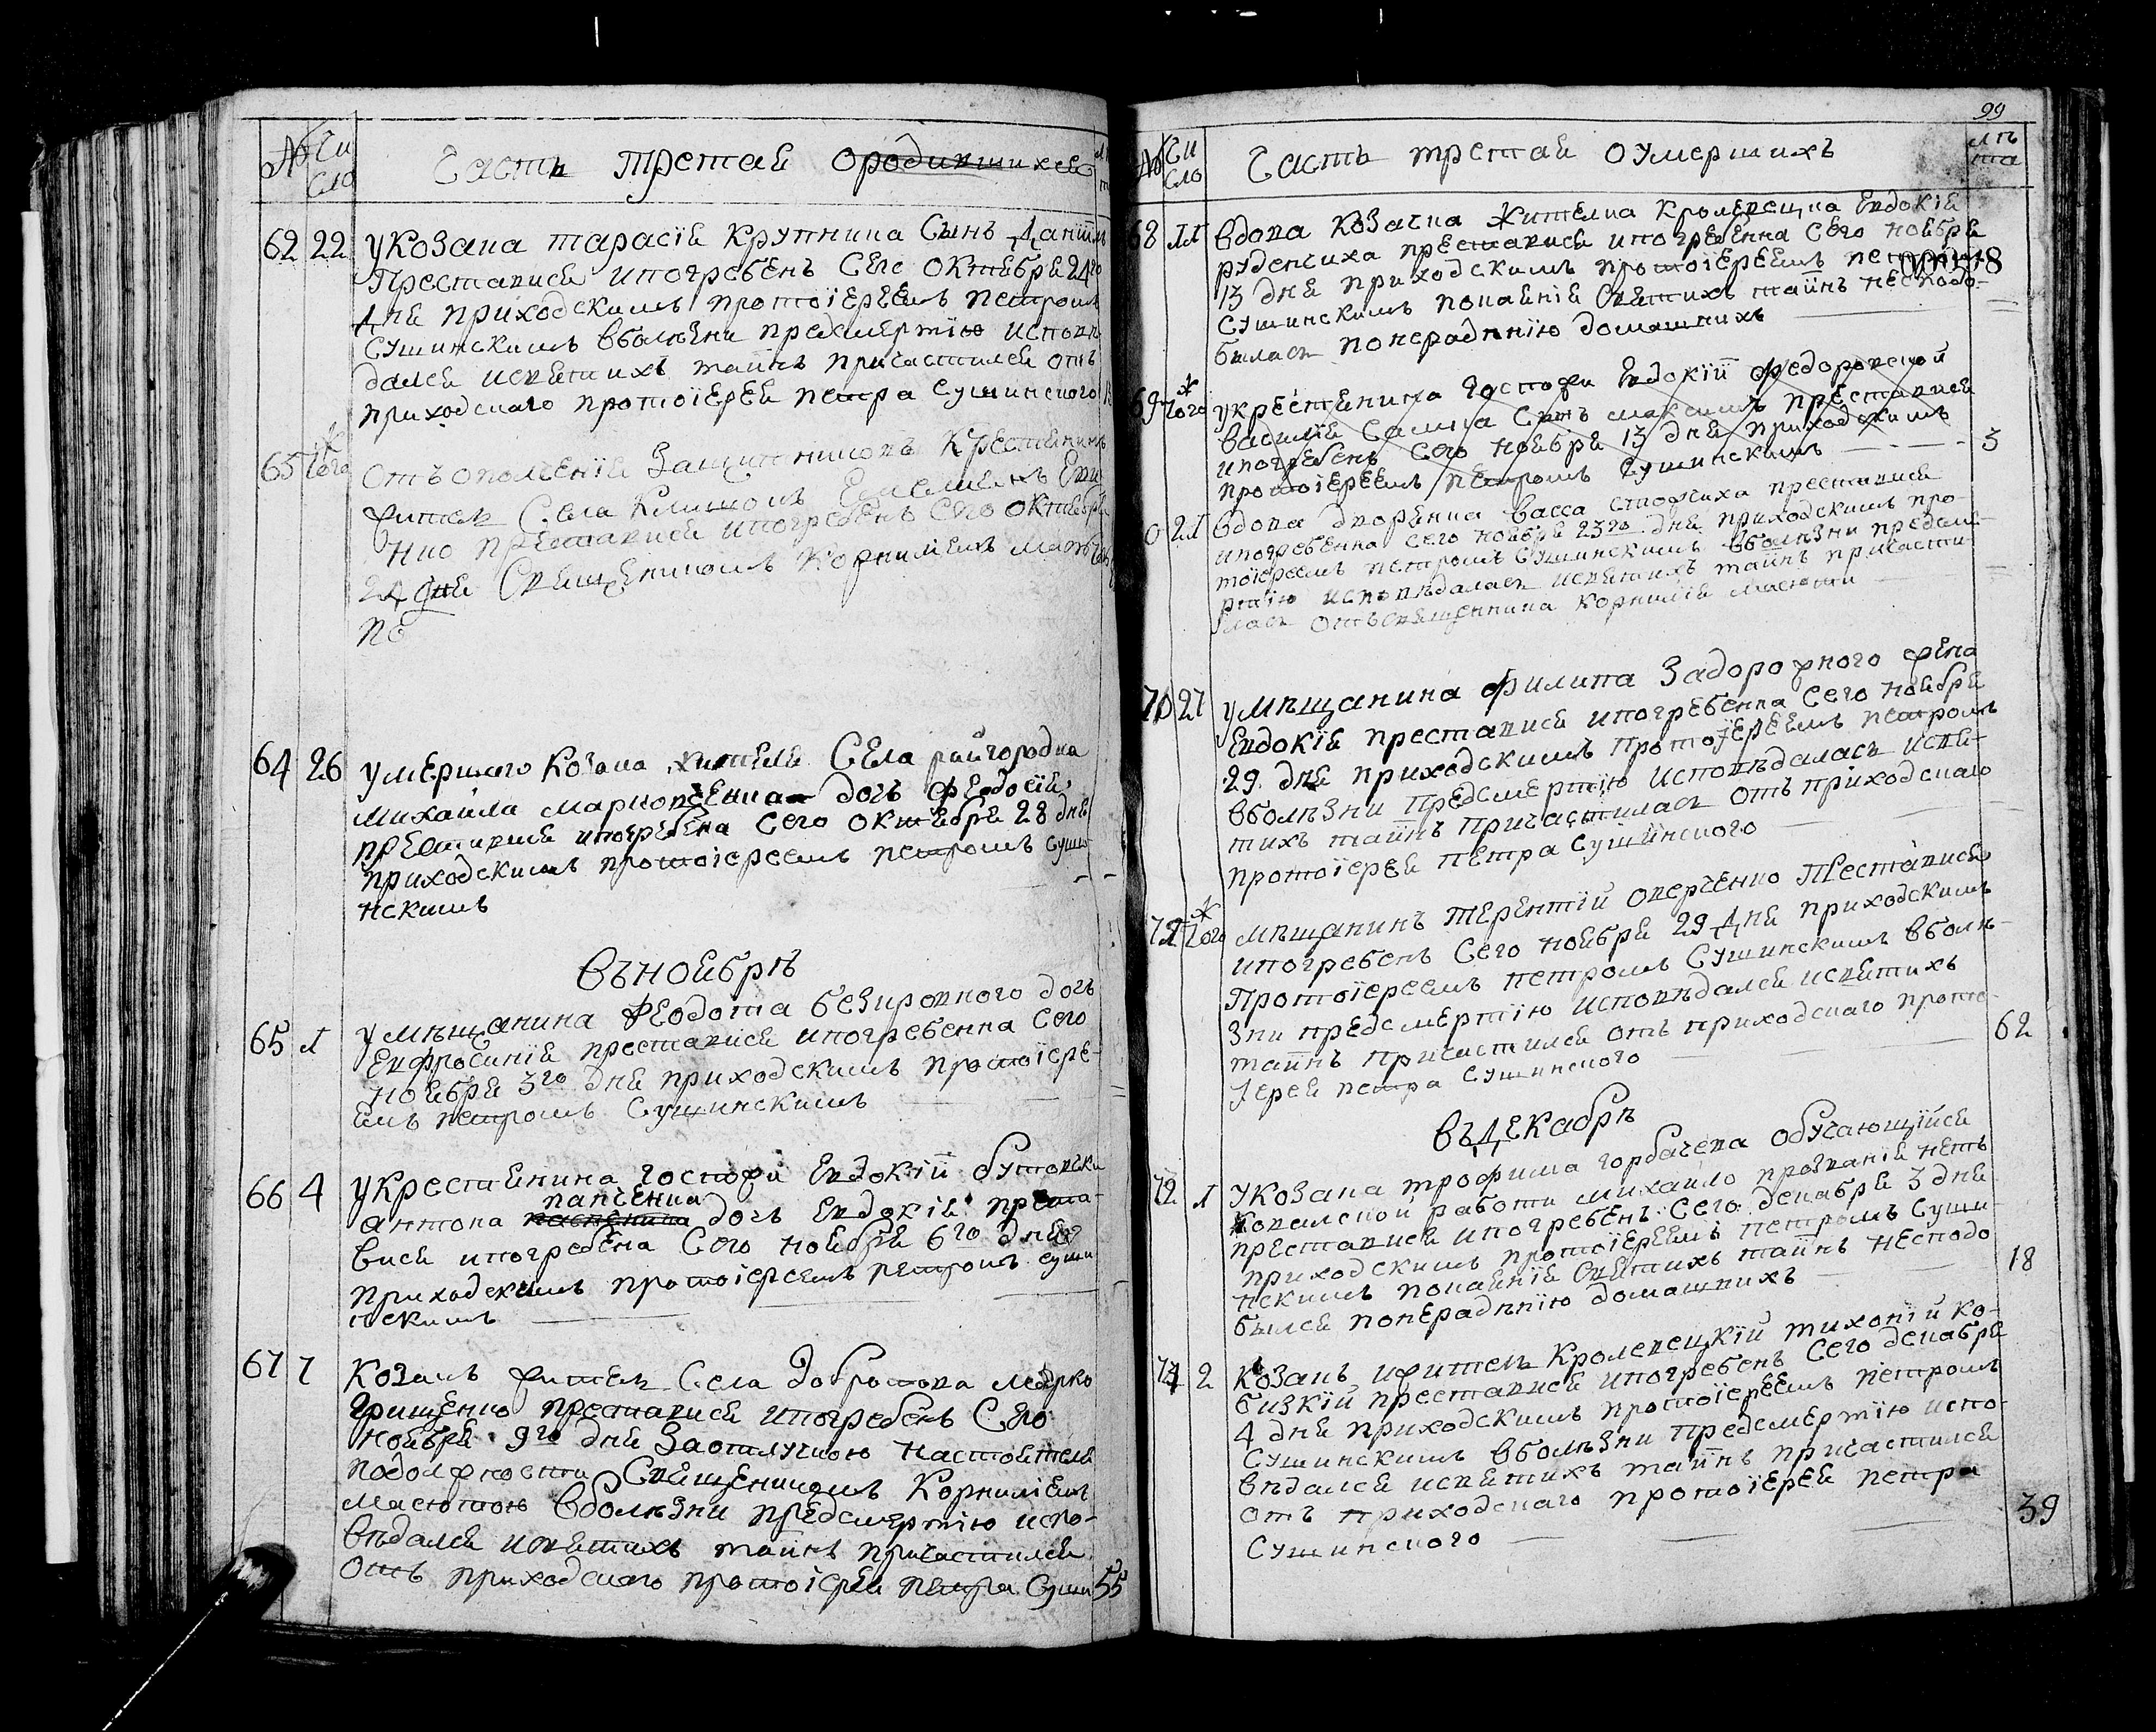 № Чи
сло
Часть третая ородившихся
62 22 У козака тарасія крупника Сынъ Даніилъ
Преставися ипогребенъ Сего Октября 24го
Дня приходскимъ протоіереемъ петромъ
Сушинскимъ вболѣзни предсмертію испові
дался исвятихъ таинъ причастился отъ
приходскаго протоіерея петра Сушинского
63 того
Отъ ополченія Защитниковъ крестянинъ
житель Села
нко преставися ипогребенъ Сего октября
24 дня Священикомъ Корниліемъ
по
64 26 Умершаго козака жителя Села райгородка
михаила марковченка дочь феодосія
преставися ипогребена Сего октября 28 дня
приходскимъ протоіереемъ петромъ суши
нскимъ
въ ноябрѣ
65 1 Умѣщанина Феодота безкровного дочь
Евфросинія преставися ипогребенна Сего
ноября 3го дня приходскимъ протоіере-
емъ петромъ Сушинскимъ
66 4 Укрестянина госпожи Евдокіи бутовск
панченка
антона дочь Евдокія преста-
вися ипогребена Сего ноября 6го дня
приходскимъ протоіереемъ петромъ суши
нскимъ
67 7 Козакъ житель Села Добротова марко
Грищенко преставися ипогребенъ Сего
ноября 9го дня Заотлучкою настоятеля
подолжности Священикомъ Корниліемъ
Масютою вболѣзни предсмертію испо-
вѣдался исвятихъ таинъ причастился
отъ приходскаго протоіерея петра Суши 55
99
№ Чи
сло
Часть третая оумершихъ
лѣ
та
68 11 вдова козачка жителка кролевецка Евдокія
руденчиха преставися ипогребенна Сего ноября
13 дня приходскимъ протоіереемъ петромъ
Сушинскимъ покаянія Святихъ таинъ несподо-
билась понерадѣнію домашнихъ
69 того укрестянина госпожи Евдокіи федоровской
василія Сынъ максимъ преставися
ипогребенъ Сего ноября 13 дня приходскимъ
протоіереемъ петромъ Сушинскимъ 3
21 вдова дворянка васса преставися
ипогребенна сего ноября 23го дня приходскимъ про-
тоіереемъ петромъ Сушинскимъ вболѣзни предсме-
ртію исповѣдалась исвятихъ таинъ причасти-
лась отъ священника корнилія масюти
70 27 Умѣщанина Филипа Задорожного жена
Евдокія преставися ипогребенна Сего ноября
29 дня приходскимъ протоіереемъ петромъ
вболѣзни предсмертію исповѣдалась исвя-
тихъ таинъ причастилась отъ приходскаго
протоіерея петра Сушинского
того мѣщанинъ терентій оверченко преставися
ипогребенъ Сего ноября 29 дня приходскимъ
Протоіереемъ петромъ Сушинскимъ вболѣ-
зни предсмертію исповѣдался исвятихъ
таинъ причастился отъ приходскаго прото-
іерея петра Сушинского 62
въ Декабрѣ
72 1 У козака трофима горбачева обучающійся
ковалской работи михайло прозванія нетъ
преставися ипогребенъ Сего декабря 3 дня
приходскимъ протоіереемъ петромъ Суши-
нскимъ покаянія Святихъ таинъ несподо
бился понерадѣнію домашнихъ 18
2 Козакъ ижитель Кролевецкій тихоній ко-
бизкій преставися ипогребенъ Сего декабря
4 дня приходскимъ протоіереемъ петромъ
Сушинскимъ вболѣзни предсмертію испо-
вѣдался исвятихъ таинъ причастился
отъ приходскаго протоіерея петра
Сушинского 39